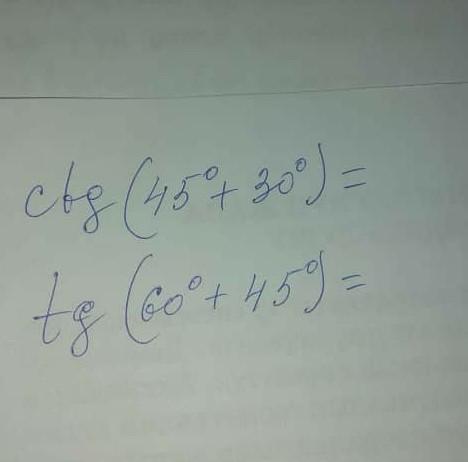 ctg (45° + 30°) =
tg (60° + 45°) =